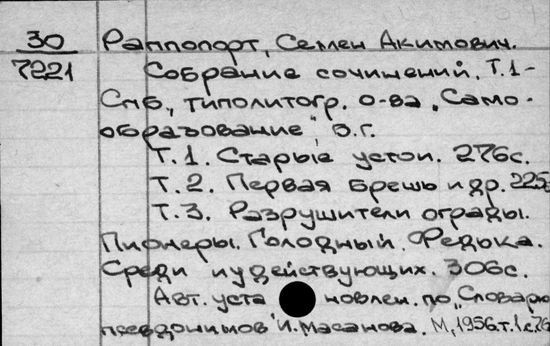 30 Раппопорт, Семен Акимович.
7221 Собрание сочинений. Т.1-
Спб., типолитогр. о-ва „Само-
образование", б.г.
Т.1. Старые устои. 276с.
Т.2. Первая брешь и др. 225с
Т.3. Разрушители ограды.
Пионеры. Голодный. Федька.
Среди иудействующих. 306с.
Авт. уста новлен. по „Словарю
псевдонимов" И. Масанова. М, 1956.т.1с.76